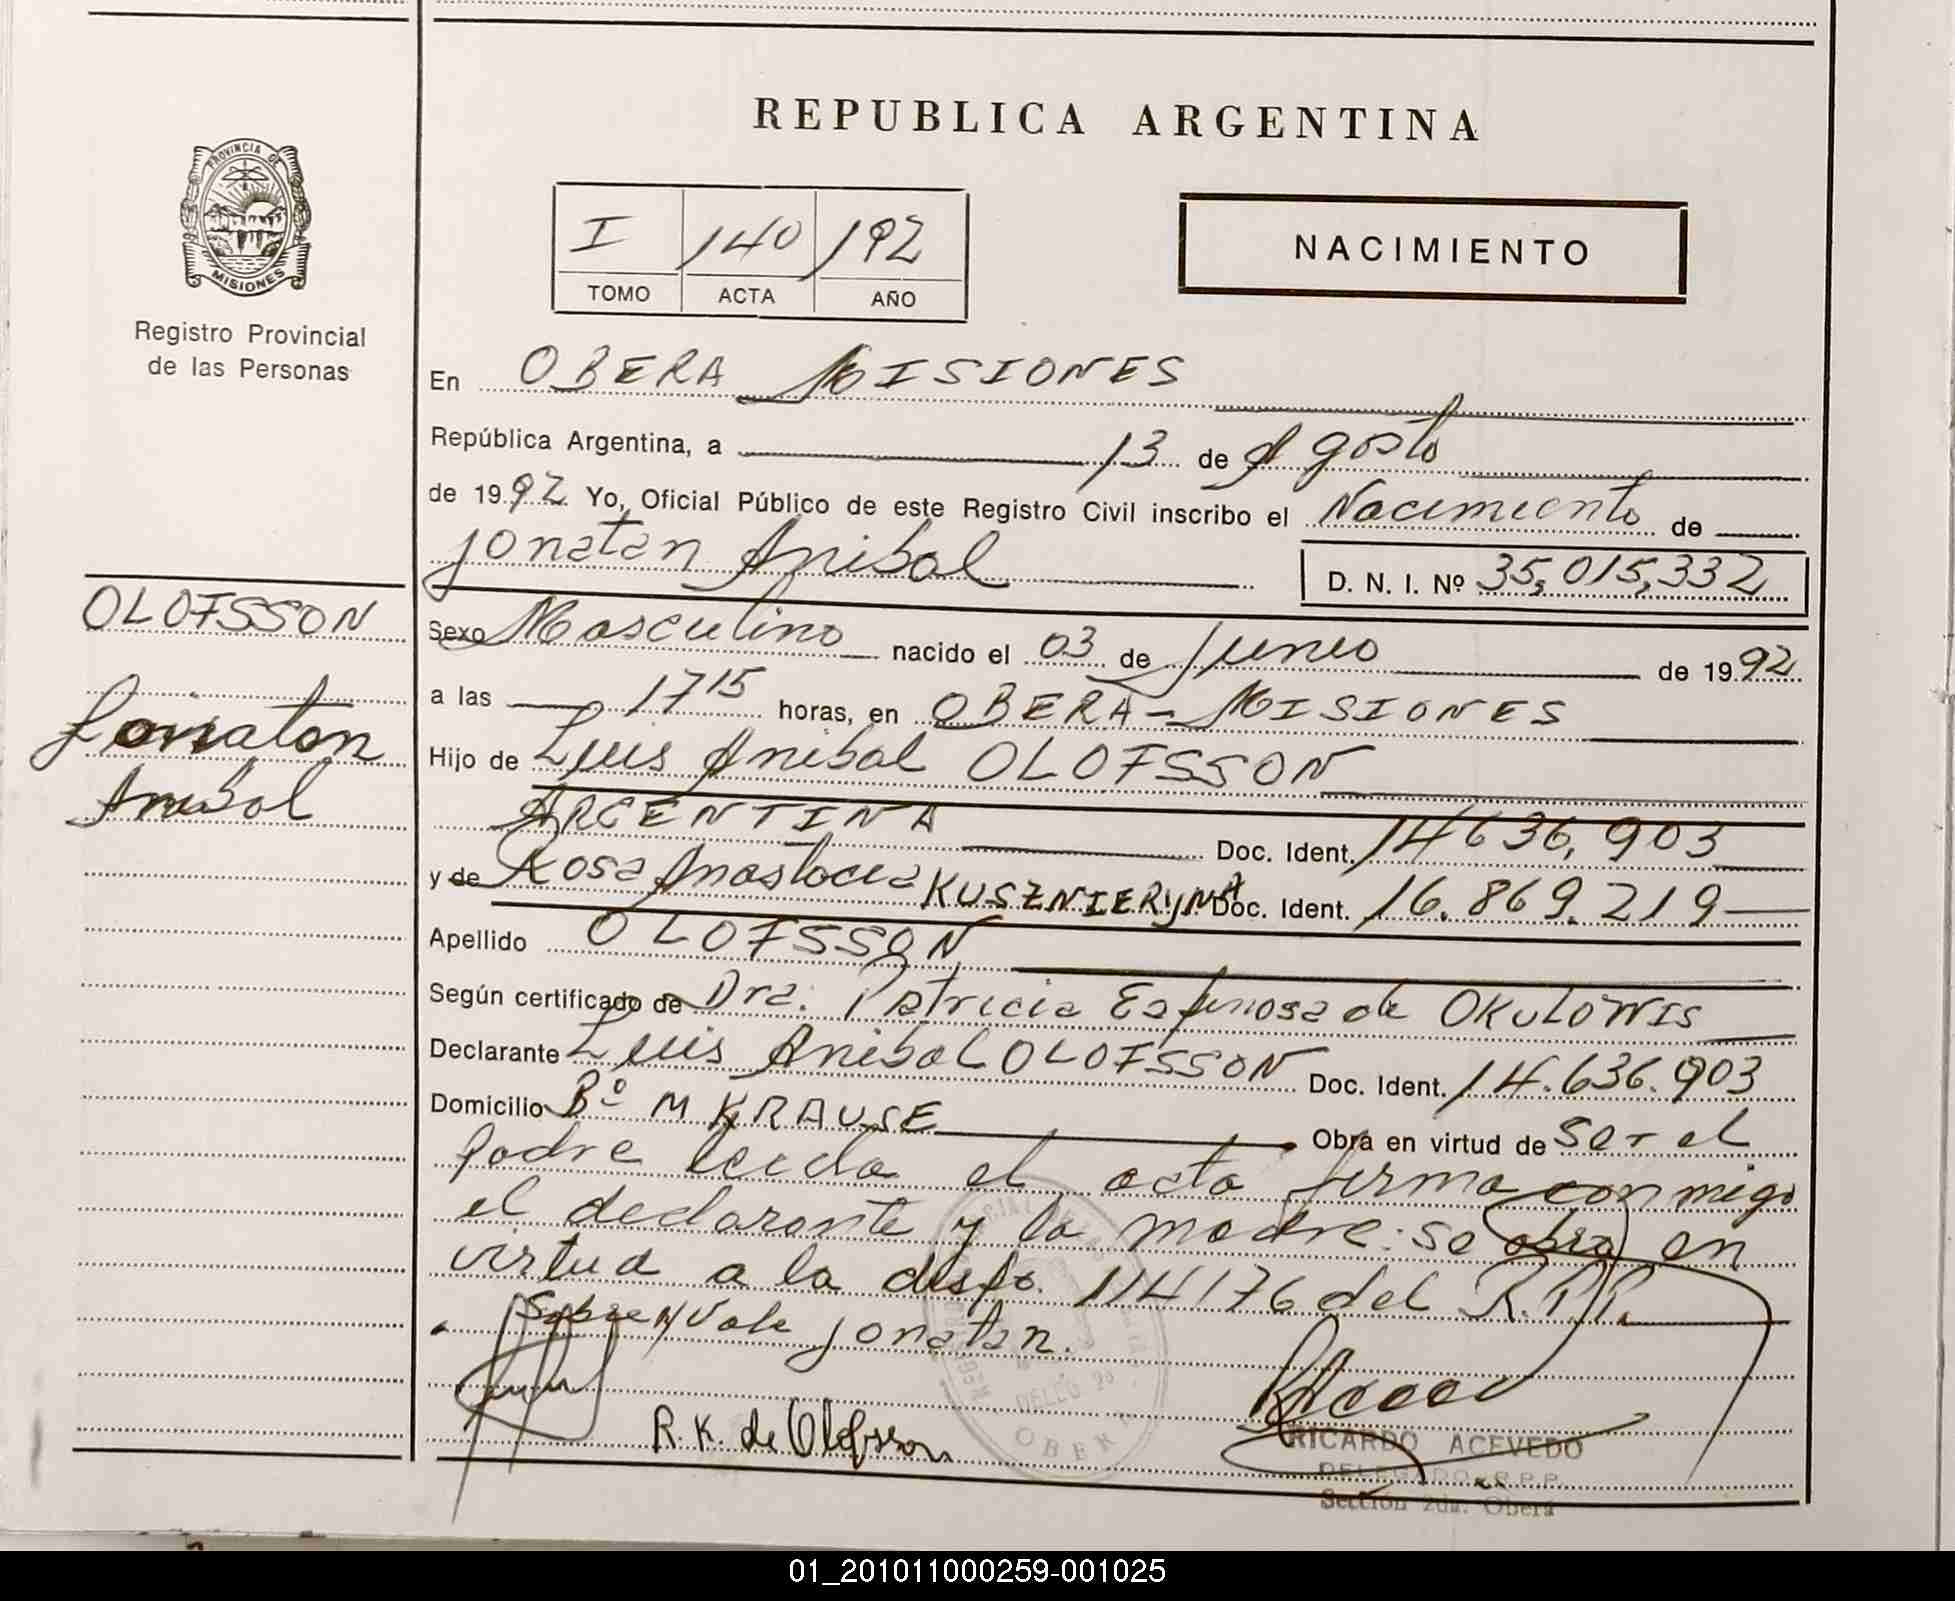 REPUBLICA ARGENTINA
PROVINCIA DE
MISIONES
Registro Provincial
de las Personas
I 140 192
TOMO ACTA AÑO
NACIMIENTO
En OBERA MISIONES
República Argentina, a 13 de Agosto
de 1992 Yo, Oficial Público de este Registro Civil inscribo el Nacimiento de
Jonatan Anibal D. N. I. Nº 35,015,332
OLOFSSON
Jonatan
Anibal
Sexo Masculino nacido el 03 de Junio de 1992
a las 1715 horas, en OBERA - MISIONES
Hijo de Luis Anibal OLOFSSON
ARGENTINA Doc. Ident. 14636,903
y de Rosa Anastacia KUSZNIERYNA Doc. Ident. 16.869.219
Apellido OLOFSSON
Según certificado de Dra. Patricia Espinosa de OKULOWIS
Declarante Luis Anibal OLOFSSON Doc. Ident. 14.636.903
Domicilio Bº M KRAUSE Obra en virtud de Ser el
padre leida el acta firma conmigo
el declarante y la madre: se obra en
virtud a la dispo. 114176 del R.P.P.
Sobre Vale Jonatan.
R. K. de Olofsson
OBERA
RICARDO ACEVEDO
DELEGADO R.P.P.
Sección 2da. Oberá
01_201011000259-001025